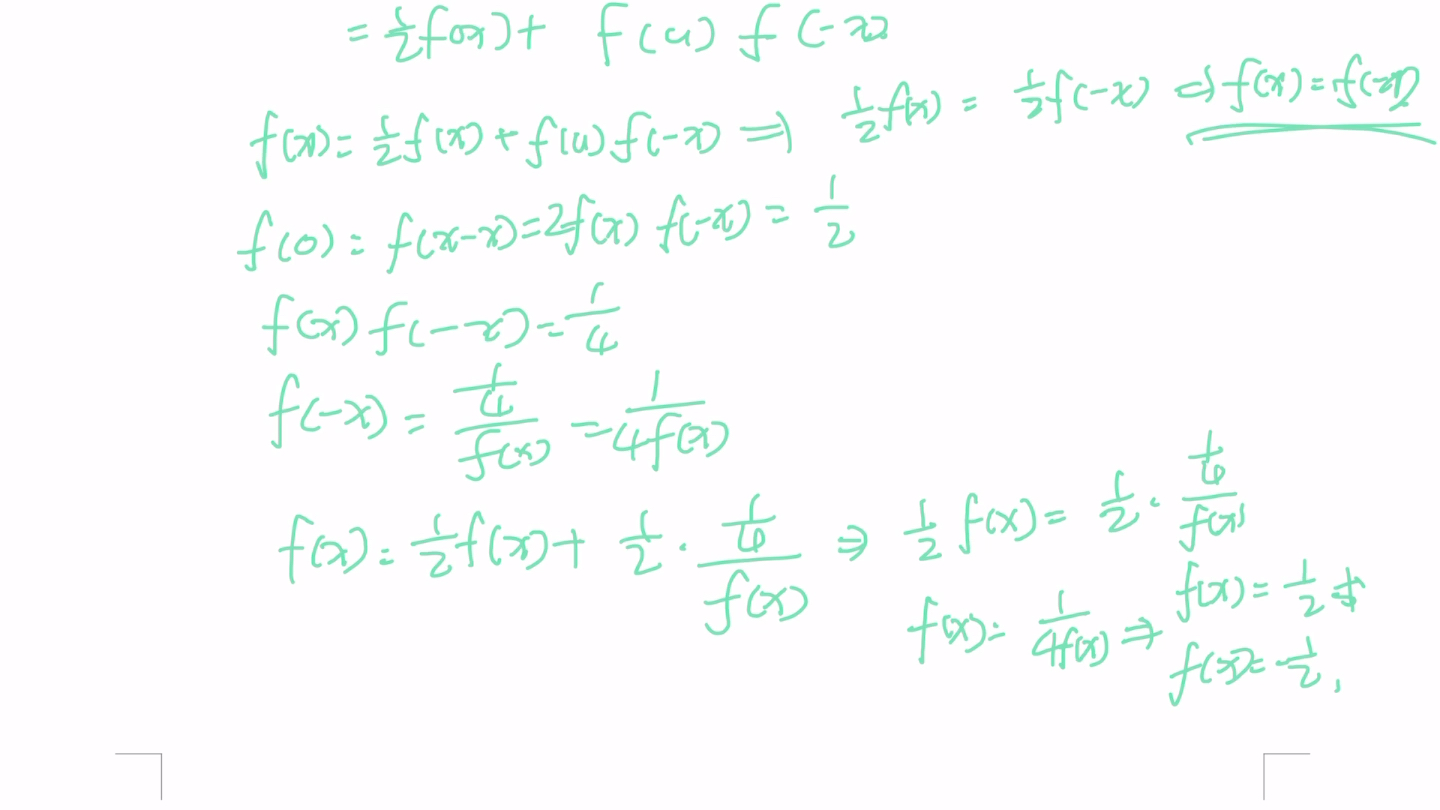 = 1/2 f(x) + f(a) f(-x)
f(x) = 1/2 f(x) + f(a) f(-x) ⇒ 1/2 f(x) = 1/2 f(-x) ⇒ f(x) = f(-x)
f(0) = f(x-x) = 2f(x) f(-x) = 1/2
f(x) f(-x) = 1/4
f(-x) = (1/4)/f(x) = 1/(4f(x))
f(x) = 1/2 f(x) + 1/2 · (1/4)/f(x) ⇒ 1/2 f(x) = 1/2 · (1/4)/f(x)
f(x) = 1/(4f(x)) ⇒ f(x) = 1/2
f(x) = -1/2,